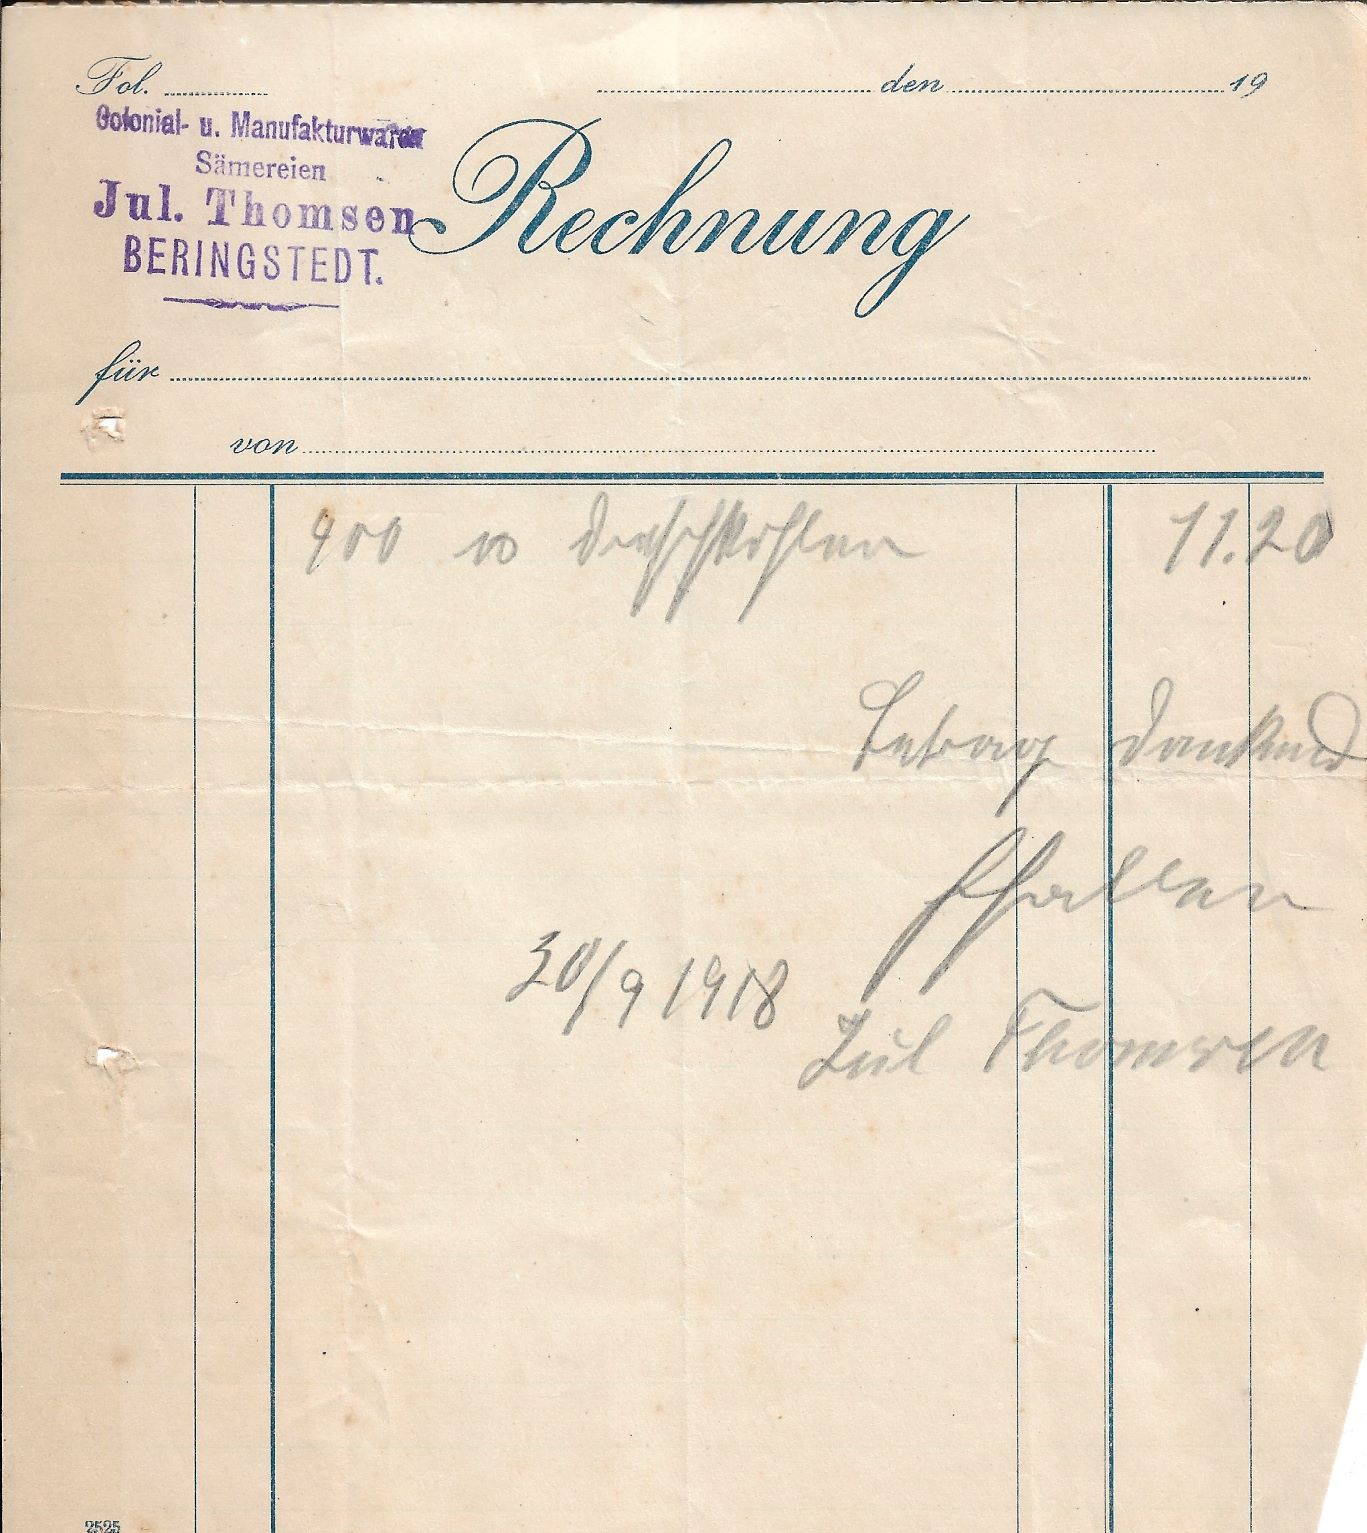 Fol. den 19
Colonial- u. Manufakturwaren
Sämereien
Jul. Thomsen
BERINGSTEDT.
Rechnung
für
von
400 W Dreschkohlen 11.20
Betrag dankend
erhalten
30/9 1918
Jul Thomsen
2525